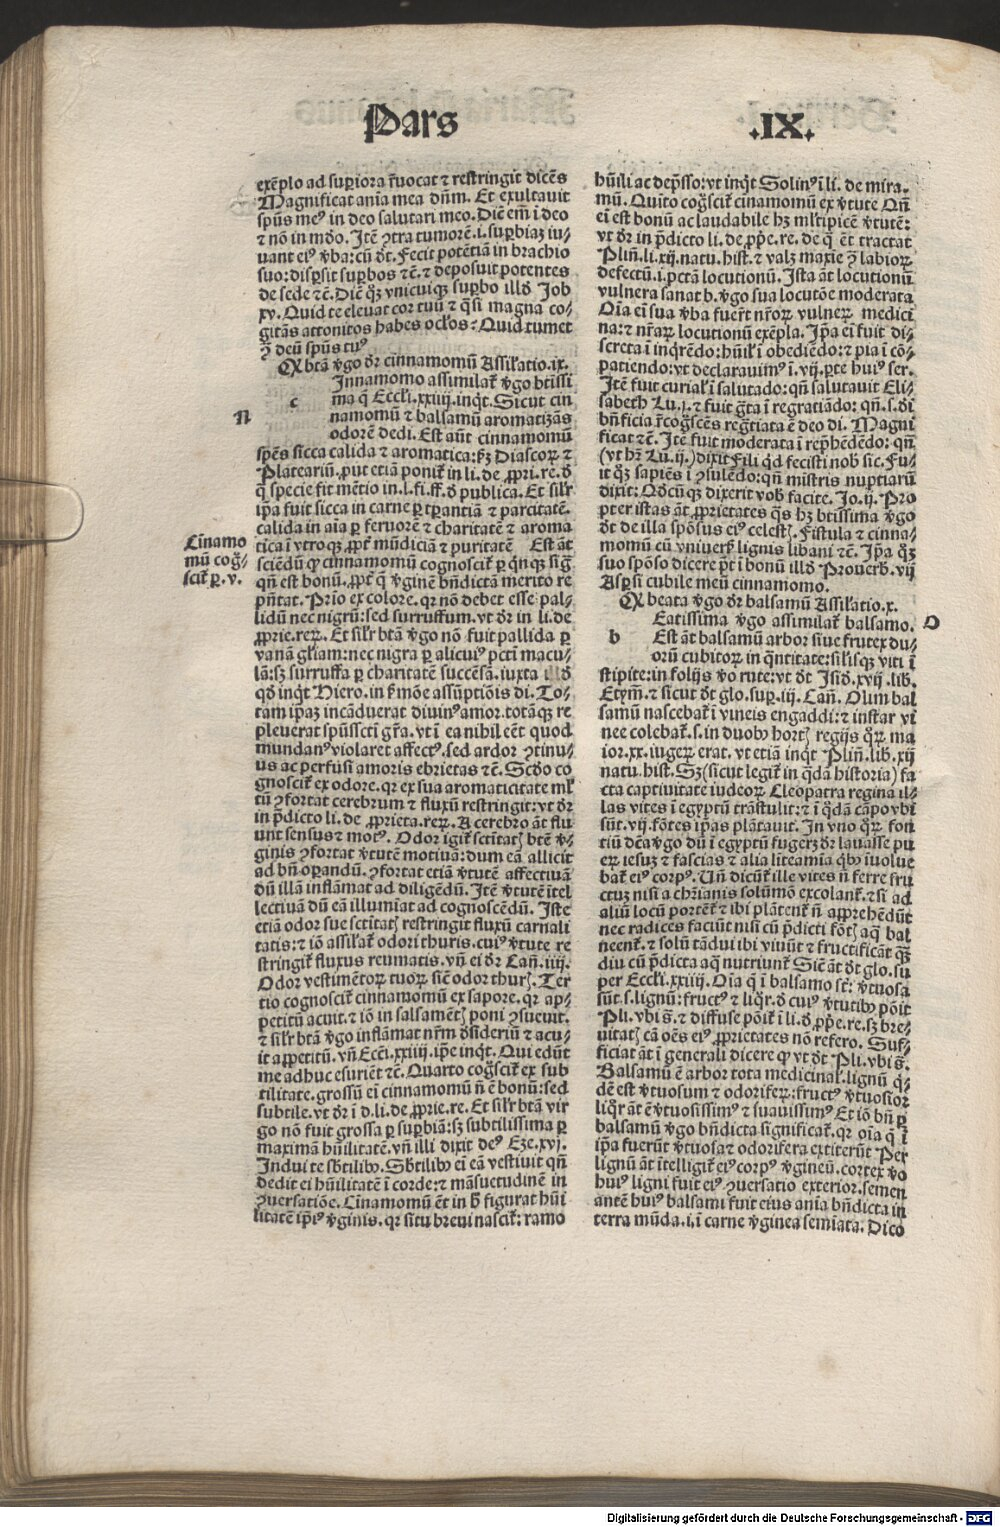 Pars .IX.
exẽplo ad suꝑiora r̃uocat ⁊ restringit dicẽs
Magnificat aĩa mea dñm. Et exultauit
spũs meꝰ in deo salutari meo. Diẽ em̃ ĩ deo
⁊ nõ in mũdo. Itẽ ꝯtra tumorẽ .i. suꝑbiaz iu-
uant eiꝰ v̾ba: cũ dt̃. Fecit potẽtiã in brachio
suo: disꝑsit suꝑbos ⁊c̃. ⁊ deposuit potentes
de sede ⁊c̃. Diẽ q̃ꝫ vnicuiqꝫ suꝑbo illđ Job
xv. Quid te eleuat cor tuũ ⁊ q̃si magna co-
gitãs attonitos habes ocl̃os? Quid tumet
ꝯ̃ deũ spũs tuꝰ
Qꝛ btã v̾go dr̃ cinnamomũ Assil̃atio .ix.
c
Innamomo assimilat̃ v̾go btissi
ma q̃ Eccl̃i. xxiiij. inqt̃. Sicut cin
N
namomũ ⁊ balsamũ aromatizãs
odorẽ dedi. Est aũt cinnamomũ
spẽs sicca calida ⁊ aromatica: ẞm Diascoꝝ ⁊
Plateariũ, ꝓut etiã ponit̃ in li. de ꝓpri. re. đ
q̃ specie fit mẽtio in .l. fi. ff. đ publica. Et sil̃r
ip̃a fuit sicca in carne ꝑ tꝑantiã ⁊ parcitatẽ.
calida in aĩa ꝑ feruorẽ ⁊ charitatẽ ⁊ aroma
tica ĩ vtroqꝫ ꝓpt̃ mũdiciã ⁊ puritatẽ Est ãt
Cĩnamo
mũ cog̃-
scit̃ ꝑ. v.
sciẽdũ ꝙ cinnamomũ cognoscit̃ ꝑ qnqꝫ sig̃
qñ est bonũ. ꝓpt̃ q̃ v̾ginẽ bñdictã merito re
pñtat. Prio ex colore. qꝛ nõ debet esse pal-
lidũ nec nigrũ: sed surruffum. vt dr̃ in li. de
ꝓprie. reꝝ. Et sil̃r btã v̾go nõ fuit pallida ꝑ
vanã gl̃iam: nec nigra ꝑ alicuiꝰ pctĩ macu-
lã: sꝫ surruffa ꝑ charitatẽ succẽsã. iuxta illđ
qđ inqt̃ Hiero. in ẞmõe assũptiõis di. To-
tam ip̃aꝫ incãduerat diuinꝰ amor. totãqꝫ re
pleuerat spũssctĩ gr̃a. vt ĩ ea nihil eẽt quod
mundanꝰ violaret affectꝰ. sed ardor ꝯtinu-
us ac perfusi amoris ebrietas ⁊c̃. Scđo co
gnoscit̃ ex odore. qꝛ ex sua aromaticitate ml̃
tũ ꝯfortat cerebrum ⁊ fluxũ restringit: vt dr̃
in p̃dicto li. de ꝓprieta. reꝝ. A cerebro ãt flu
unt sensus ⁊ motꝰ. Odor igit̃ sctĩtatꝭ btẽ v̾-
ginis ꝯfortat v̾tutẽ motiuã: dum eã allicit
ad bñ oꝑandũ. ꝯfortat etiã v̾tutẽ affectiuã
dũ illã inflãmat ad diligẽdũ. Itẽ v̾tutẽ ĩtel
lectiuã dũ eã illumĩat ad cognoscẽdũ. Iste
etiã odor sue sctĩtatꝭ restringit fluxũ carnali
tatis: ⁊ iõ assil̃at̃ odori thuris. cuiꝰ v̾tute re
stringit̃ fluxus reumatis. vñ ei dr̃ Cañ. iiij.
Odor vestimẽtoꝝ tuoꝝ sic̃ odor thurꝭ. Ter
tio cognoscit̃ cinnamomũ ex sapore. qꝛ ap-
petitũ acuit. ⁊ iõ in salsamẽtꝭ poni ꝯsueuit.
⁊ sil̃r btã v̾go inflãmat nr̃m đsideriũ ⁊ acu-
it appetitũ. vñ Ecci. xxiiij. ip̃e inqt̃. Qui edũt
me adhuc esuriẽt ⁊c̃. Quarto cog̃scit̃ ex sub
tilitate. grossũ ei cinnamomũ ñ ẽ bonũ: sed
subtile. vt dr̃ ĩ d. li. de ꝓprie. re. Et sil̃r btã vir
go nõ fuit grossa ꝑ suꝑbiã: sꝫ subtilissima ꝑ
maximã hũilitatẽ. vñ illi dixit deꝰ Eze. xvj.
Indui te sb̃tilibꝰ. Sb̃tilibꝰ ei eã vestiuit qñ
dedit ei hũilitatẽ ĩ corde: ⁊ mãsuetudinẽ in
ꝯuersatiõe. Cinnamomũ ẽt in h̃ figurat hũi
litatẽ ip̃iꝰ v̾ginis. qꝛ situ breui nascit̃: ramo
hũili ac dep̃sso: vt inqt̃ Solinꝰ ĩ li. de mira.
mũ. Quito cog̃scit̃ cinamomũ ex v̾tute Qñ
ei est bonũ ac laudabile hꝫ ml̃tipicẽ v̾tutẽ:
vt dr̃ in p̃dicto li. de ꝓp̃e. re. de q̃ ẽt tractat
Plin̾. li. xij. natu. hist. ⁊ valꝫ maxie ꝯ̃ labioꝝ
defectũ .i. pctã locutionũ. Ista ãt locutionũ
vulnera sanat b. v̾go sua locutõe moderata
Qĩa ei sua v̾ba fuer̃t nr̃oꝝ vulneꝝ medici
na: ⁊ nr̃aꝝ locutionũ exẽpla. Ip̃a ei fuit di-
screta ĩ inqr̃edo: hũil̃ ĩ obediẽdo: ⁊ pia ĩ cõ-
patiendo: vt declarauimꝰ ĩ. vij. ꝑte huiꝰ ser.
Itẽ fuit curial̃ ĩ salutãdo: qñ salutauit Eli-
sabeth Lu. j. ⁊ fuit g̃ta ĩ regratiãdo: qñ. s. đi
bñficia r̃cog̃scẽs reg̃tiata ẽ deo di. Magni
ficat ⁊c̃. Itẽ fuit moderata ĩ rep̃hẽdẽdo: qñ
(vt hr̃ Lu. ij.) dixit Fili qđ fecisti nob̃ sic. Fu-
it q̃ꝫ sapiẽs ĩ ꝯsulẽdo: qñ mĩstris nuptiarũ
dixit: Qđcũqꝫ dixerit vob̃ facite. Jo. ij. Pro
pter istas ãt ꝓprietates q̃s hꝫ btissima v̾go
dt̃ de illa spõsus eiꝰ celestꝭ. Fistula ⁊ cinna-
momũ cũ vniuersꝭ lignis libani ⁊c̃. Ip̃a q̃ꝫ
suo spõso dicere põt ĩ bonũ illđ Prouerb. vij
Asꝑsi cubile meũ cinnamomo.
Qꝛ beata v̾go dr̃ balsamũ Assil̃atio .x.
b
Eatissima v̾go assimilat̃ balsamo.
O
Est ãt balsamũ arbor siue frutex du-
orũ cubitoꝝ in q̃ntitate: sil̃isqꝫ viti ĩ
stipite: in folijs v̾o rute: vt dt̃ Isid̃. xvij. lib.
Etym̃. ⁊ sicut dt̃ glo. suꝑ. iij. Cañ. Olim bal
samũ nascebat̃ ĩ vineis engaddi: ⁊ instar vi
nee colebat̃. s. in duobꝰ hortꝭ regijs q̃ꝝ ma
ior. xx. iugeꝝ erat. vt etiã inqt̃ Plin̾. lib. xij
natu. hist. Sꝫ (sicut legit̃ in q̃dã historia) fa
cta captiuitate iudeoꝝ Cleopatra regina il-
las vites ĩ egyptũ trãstulit: ⁊ ĩ q̃dã cãpo vbi
sũt. vij. fõtes ip̃as plãtauit. In vno q̃ꝝ fon
tiũ dẽa v̾go dũ ĩ egyptũ fugerꝫ dr̃ lauasse pu
eꝝ iesuꝫ ⁊ fascias ⁊ alia liteamĩa qbꝰ ĩuolue
bat̃ eiꝰ corpꝰ. Uñ dicũt̃ ille vites ñ ferre fru
ctuꝫ nisi a chr̃ianis solũmõ excolant̃. ⁊ si ad
aliũ locũ portẽt̃ ⁊ ibi plãtent̃ ñ apprehẽdũt
nec radices faciũt nisi cũ p̃dicti fõtꝭ aq̃ bal
neent̃. ⁊ solũ tãdui ibi viuũt ⁊ fructificãt q̃ꝫ
diu cũ p̃dicta aq̃ nutriunt̃ Sic̃ ãt dt̃ glo. su
per Eccl̃i. xxiiij. Oĩa q̃ ĩ balsamo st̃: v̾tuosa
sũt. s. lignũ: fructꝰ ⁊ liq̃r. đ cuiꝰ v̾tutibꝰ põit
Pli. vbi s̃. ⁊ diffuse põit̃ ĩ li. đ ꝓp̃e. re. sꝫ bre-
uitatꝭ cã oẽs eiꝰ ꝓprietates nõ refero. Suf-
ficiat ãt ĩ generali dicere ꝙ vt dt̃ Pli. vbi s̃.
Balsamũ ẽ arbor tota medicinal̃. lignũ q̃-
dẽ est v̾tuosum ⁊ odoriferꝝ: fructꝰ v̾tuosior
liq̃r ãt ẽ v̾tuosissimꝰ ⁊ suauissimꝰ Et iõ bñ ꝑ
balsamũ v̾go bñdicta significat̃. qꝛ oĩa q̃ ĩ
ip̃a fuerũt v̾tuosa ⁊ odorifera extiterũt Per
lignũ ãt ĩtelligit̃ eiꝰ corpꝰ v̾gineũ. cortex v̾o
huiꝰ ligni fuit eiꝰ ꝯuersatio exterior. semen
antẽ huiꝰ balsami fuit eius anĩa bñdicta in
terra mũda. i. ĩ carne v̾ginea semĩata. Dico
Digitalisierung gefördert durch die Deutsche Forschungsgemeinschaft - DFG